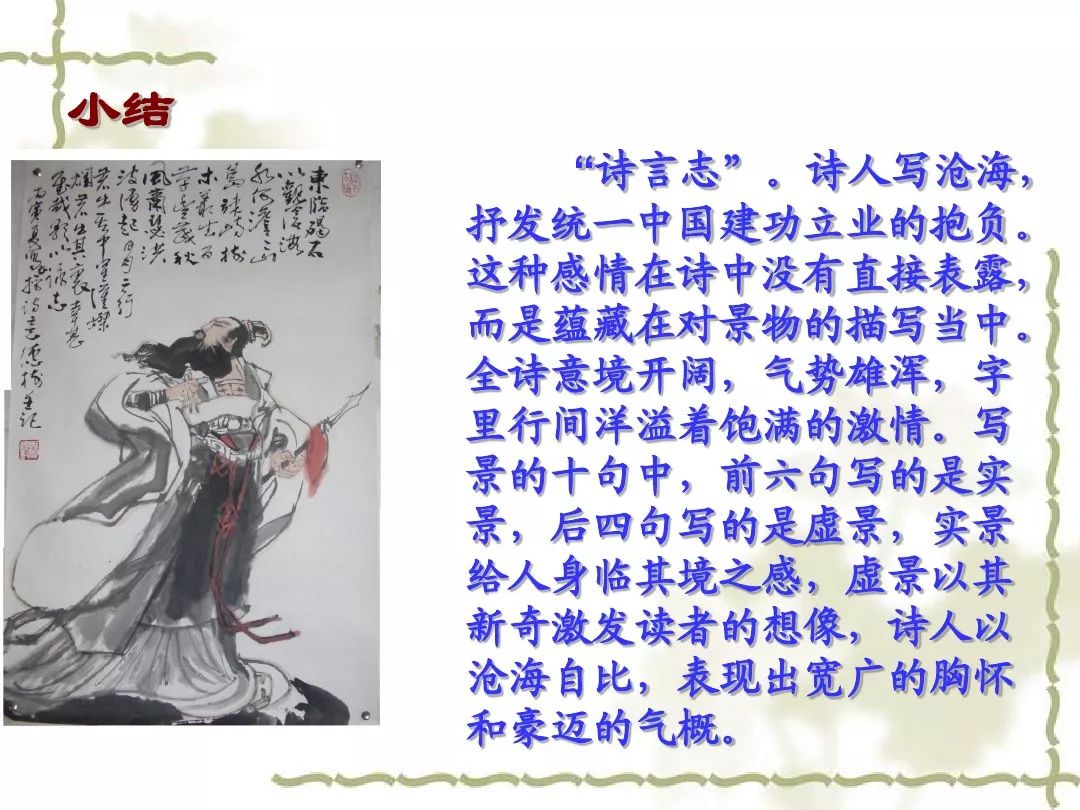 小结
東臨碣石
以觀滄海
水何澹々山
島竦峙樹
木叢生百
草豐茂秋
風蕭瑟洪
波湧起日月之行
若出其中星漢燦
爛若出其裏幸甚
至哉歌以詠志
“诗言志”。诗人写沧海，
抒发统一中国建功立业的抱负。
这种感情在诗中没有直接表露，
而是蕴藏在对景物的描写当中。
全诗意境开阔，气势雄浑，字
里行间洋溢着饱满的激情。写
景的十句中，前六句写的是实
景，后四句写的是虚景，实景
给人身临其境之感，虚景以其
新奇激发读者的想像，诗人以
沧海自比，表现出宽广的胸怀
和豪迈的气概。